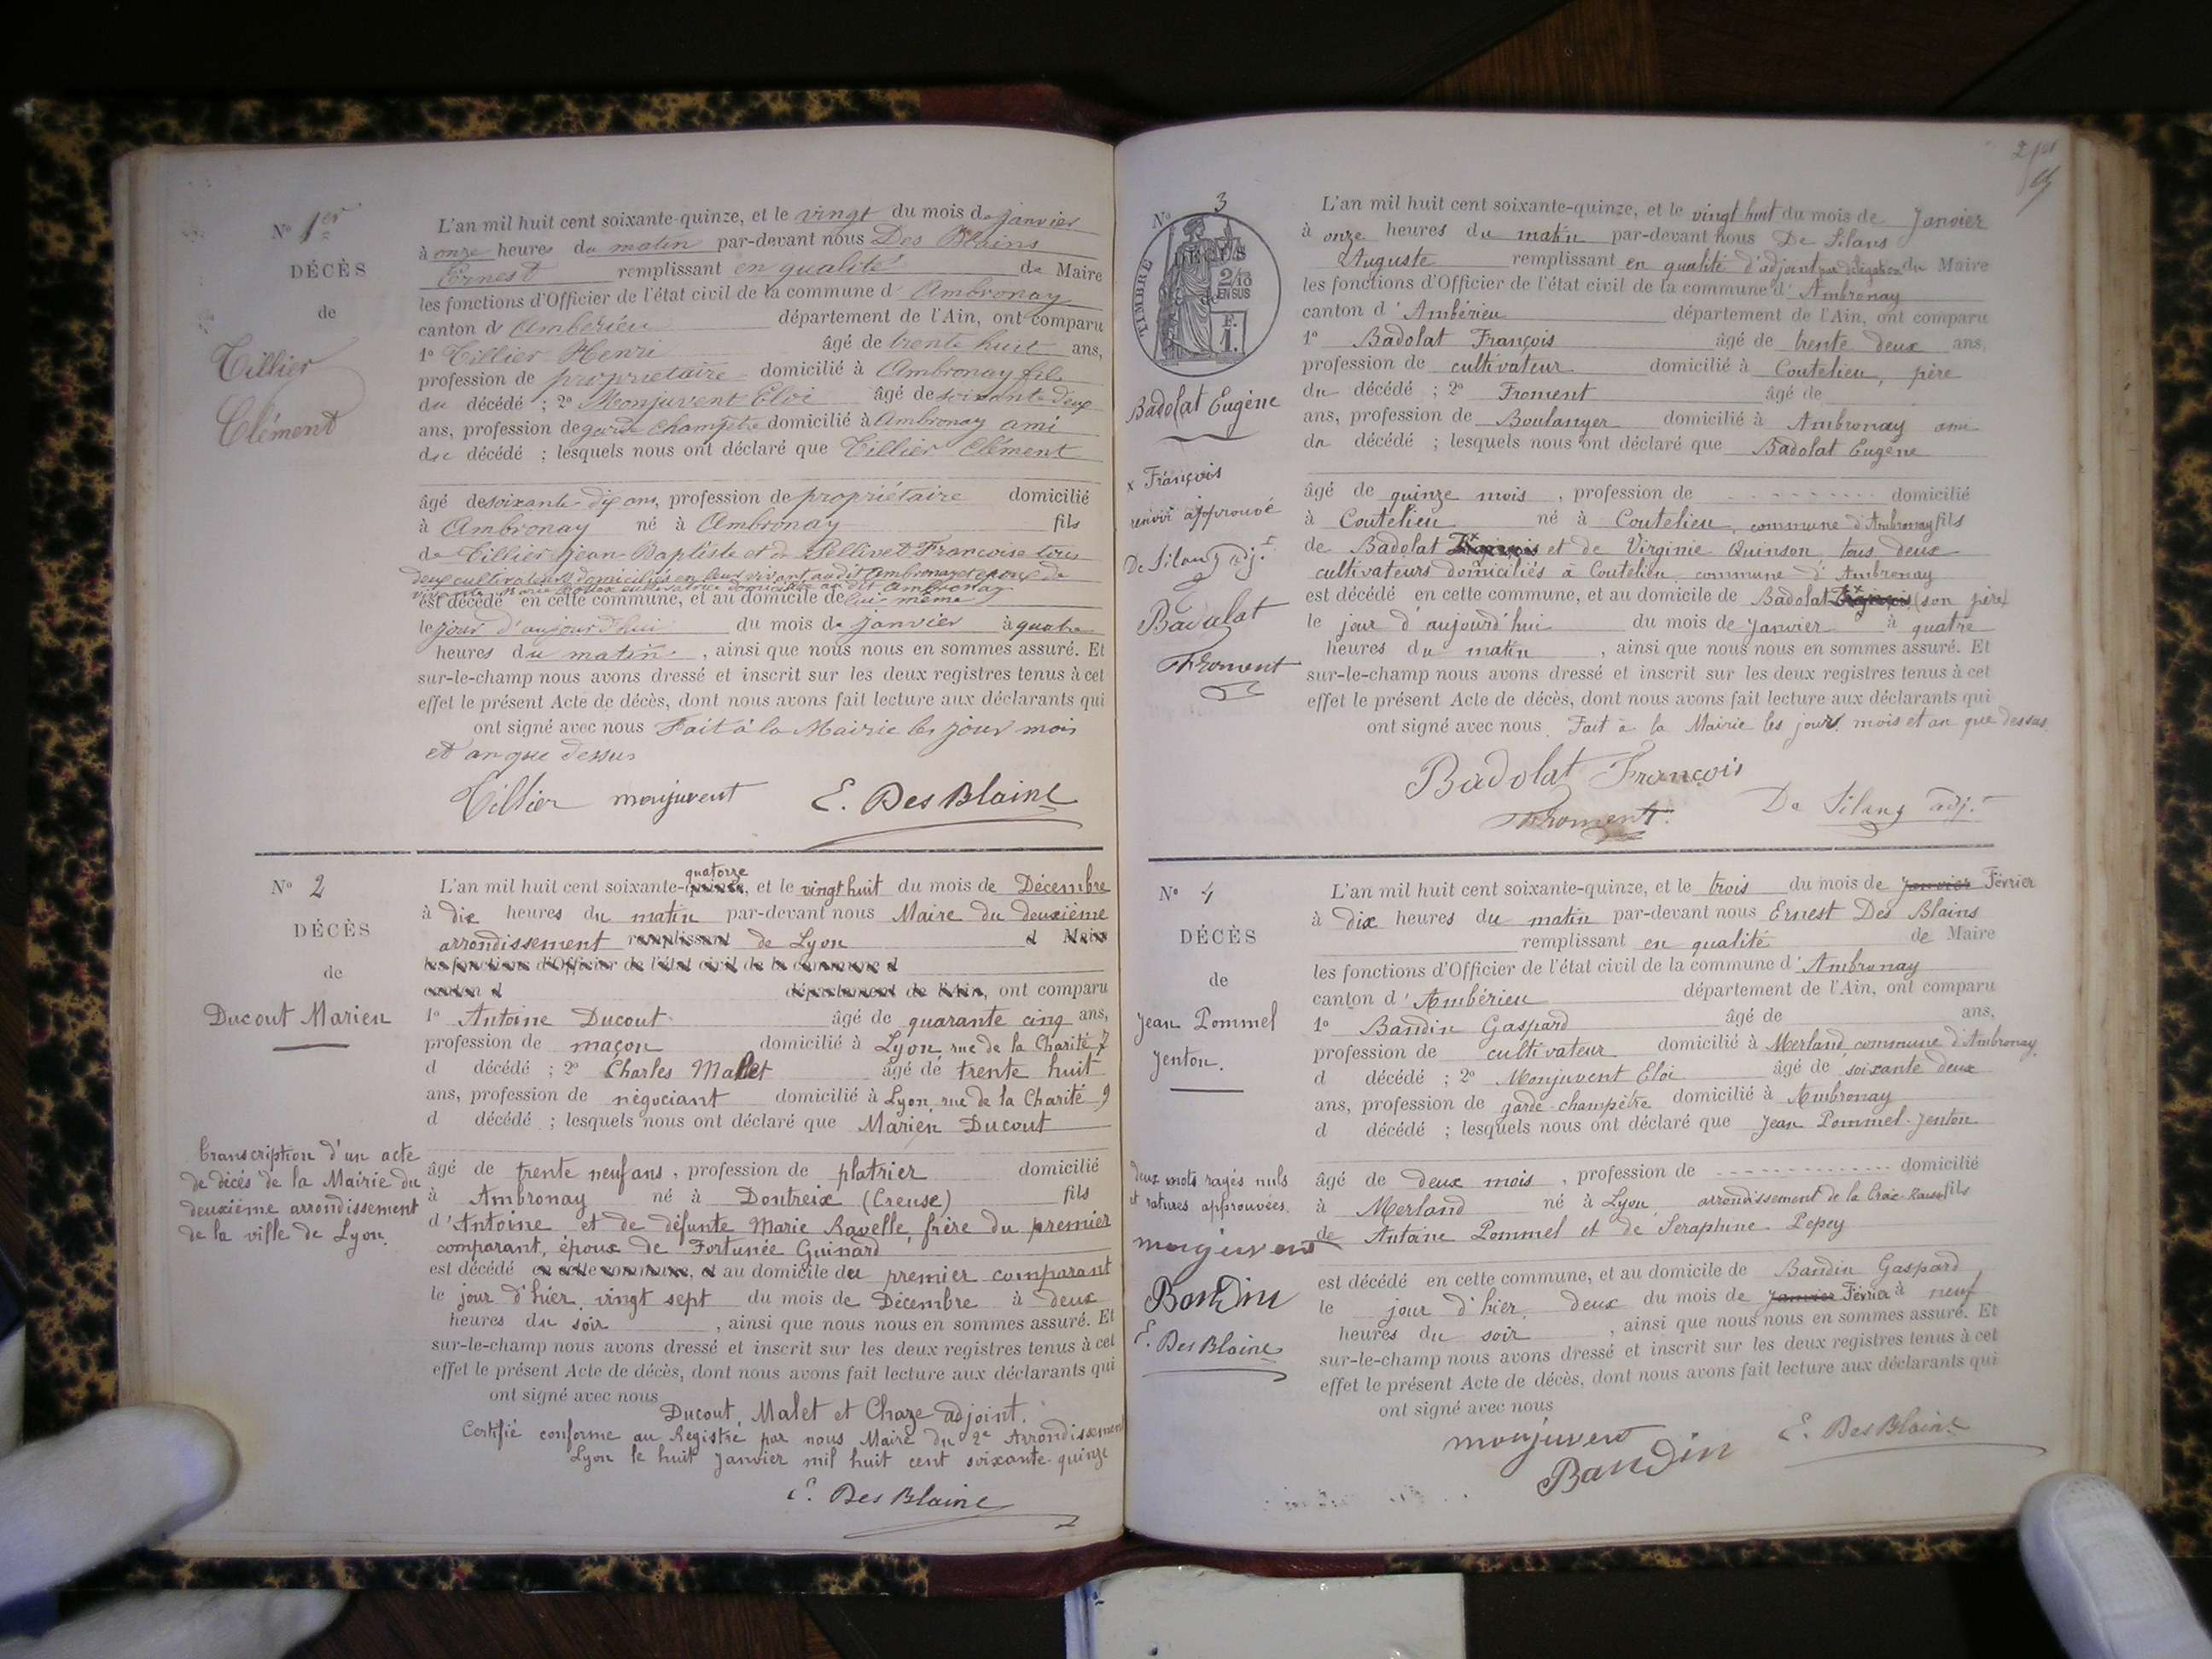 N° 1er
DÉCÈS
de
Tillier
Clément
L'an mil huit cent soixante-quinze, et le vingt du mois de janvier
à onze heures du matin par-devant nous Des Blains
Ernest remplissant en qualité de Maire
les fonctions d'Officier de l'état civil de la commune d' Ambronay
canton d' Ambérieu département de l'Ain, ont comparu
1° Tillier Henri âgé de trente huit ans,
profession de propriétaire domicilié à Ambronay fils
du décédé ; 2° Monjuvent Eloi âgé de soixante deux
ans, profession de garde champêtre domicilié à Ambronay ami
du décédé ; lesquels nous ont déclaré que Tillier Clément
âgé de soixante dix ans, profession de propriétaire domicilié
à Ambronay né à Ambronay fils
de Tillier Jean-Baptiste et de Pellivet Françoise tous
deux cultivateurs domiciliés en leur vivant au dit Ambronay et époux de
cultivatrice domiciliée au dit Ambronay
est décédé en cette commune, et au domicile de lui même
le jour d'aujourd'hui du mois de janvier à quatre
heures du matin , ainsi que nous nous en sommes assuré. Et
sur-le-champ nous avons dressé et inscrit sur les deux registres tenus à cet
effet le présent Acte de décès, dont nous avons fait lecture aux déclarants qui
ont signé avec nous Fait à la Mairie les jour mois
et an que dessus
Tillier monjuvent E. Des Blains
N° 2
DÉCÈS
de
Ducout Marien
Transcription d'un acte
de décès de la Mairie du
deuxième arrondissement
de la ville de Lyon.
quatorze
L'an mil huit cent soixante-quinze, et le vingt huit du mois de Décembre
à dix heures du matin par-devant nous Maire du deuxième
arrondissement remplissant de Lyon d Maire
les fonctions d'Officier de l'état civil de la commune d
canton d département de l'Ain, ont comparu
1° Antoine Ducout âgé de quarante cinq ans,
profession de maçon domicilié à Lyon, rue de la Charité 7
d décédé ; 2° Charles Malet âgé de trente huit
ans, profession de négociant domicilié à Lyon, rue de la Charité 9
d décédé ; lesquels nous ont déclaré que Marien Ducout
âgé de trente neuf ans, profession de platrier domicilié
à Ambronay né à Dontreix (Creuse) fils
d'Antoine et de défunte Marie Ravelle, frère du premier
comparant, époux de Fortunée Guinard
est décédé en cette commune, et au domicile du premier comparant
le jour d'hier, vingt sept du mois de Décembre à deux
heures du soir , ainsi que nous nous en sommes assuré. Et
sur-le-champ nous avons dressé et inscrit sur les deux registres tenus à cet
effet le présent Acte de décès, dont nous avons fait lecture aux déclarants qui
ont signé avec nous
Ducout, Malet et Chaze adjoint.
Certifié conforme au Registre par nous Maire du 2e Arrondissement
Lyon le huit Janvier mil huit cent soixante-quinze
E. Des Blains
N° 3
TIMBRE
DÉCIMES
2/10
EN SUS
F.
1.
Badolat Eugène
x François
renvoi approuvé
De Silans adj.t
Badolat
Froment
L'an mil huit cent soixante-quinze, et le vingt huit du mois de Janvier
à onze heures du matin par-devant nous De Silans
Auguste remplissant en qualité d'adjoint par délégation du Maire
les fonctions d'Officier de l'état civil de la commune d' Ambronay
canton d' Ambérieu département de l'Ain, ont comparu
1° Badolat François âgé de trente deux ans,
profession de cultivateur domicilié à Coutelieu, père
du décédé ; 2° Froment âgé de
ans, profession de Boulanger domicilié à Ambronay ami
du décédé ; lesquels nous ont déclaré que Badolat Eugène
âgé de quinze mois , profession de domicilié
à Coutelieu né à Coutelieu, commune d'Ambronay fils
de Badolat François x et de Virginie Quinson tous deux
cultivateurs domiciliés à Coutelieu commune d'Ambronay
est décédé en cette commune, et au domicile de Badolat François x (son père)
le jour d'aujourd'hui du mois de Janvier à quatre
heures du matin , ainsi que nous nous en sommes assuré. Et
sur-le-champ nous avons dressé et inscrit sur les deux registres tenus à cet
effet le présent Acte de décès, dont nous avons fait lecture aux déclarants qui
ont signé avec nous. Fait à la Mairie les jours mois et an que dessus
Badolat François
Froment De Silans adj.t
N° 4
DÉCÈS
de
Jean Pommel
Jenton.
deux mots rayés nuls
et ratures approuvées.
monjuvent
Baudin
E. Des Blains
L'an mil huit cent soixante-quinze, et le trois du mois de Janvier Février
à dix heures du matin par-devant nous Ernest Des Blains
remplissant en qualité de Maire
les fonctions d'Officier de l'état civil de la commune d' Ambronay
canton d' Ambérieu département de l'Ain, ont comparu
1° Baudin Gaspard âgé de ans,
profession de cultivateur domicilié à Merland, commune d'Ambronay
d décédé ; 2° Monjuvent Eloi âgé de soixante deux
ans, profession de garde-champêtre domicilié à Ambronay
d décédé ; lesquels nous ont déclaré que Jean Pommel-Jenton
âgé de deux mois , profession de domicilié
à Merland né à Lyon, arrondissement de la Croix-Rousse fils
de Antoine Pommel et de Séraphine Pepey
est décédé en cette commune, et au domicile de Baudin Gaspard
le jour d'hier deux du mois de Janvier Février à neuf
heures du soir , ainsi que nous nous en sommes assuré. Et
sur-le-champ nous avons dressé et inscrit sur les deux registres tenus à cet
effet le présent Acte de décès, dont nous avons fait lecture aux déclarants qui
ont signé avec nous
monjuvent E. Des Blains
Baudin